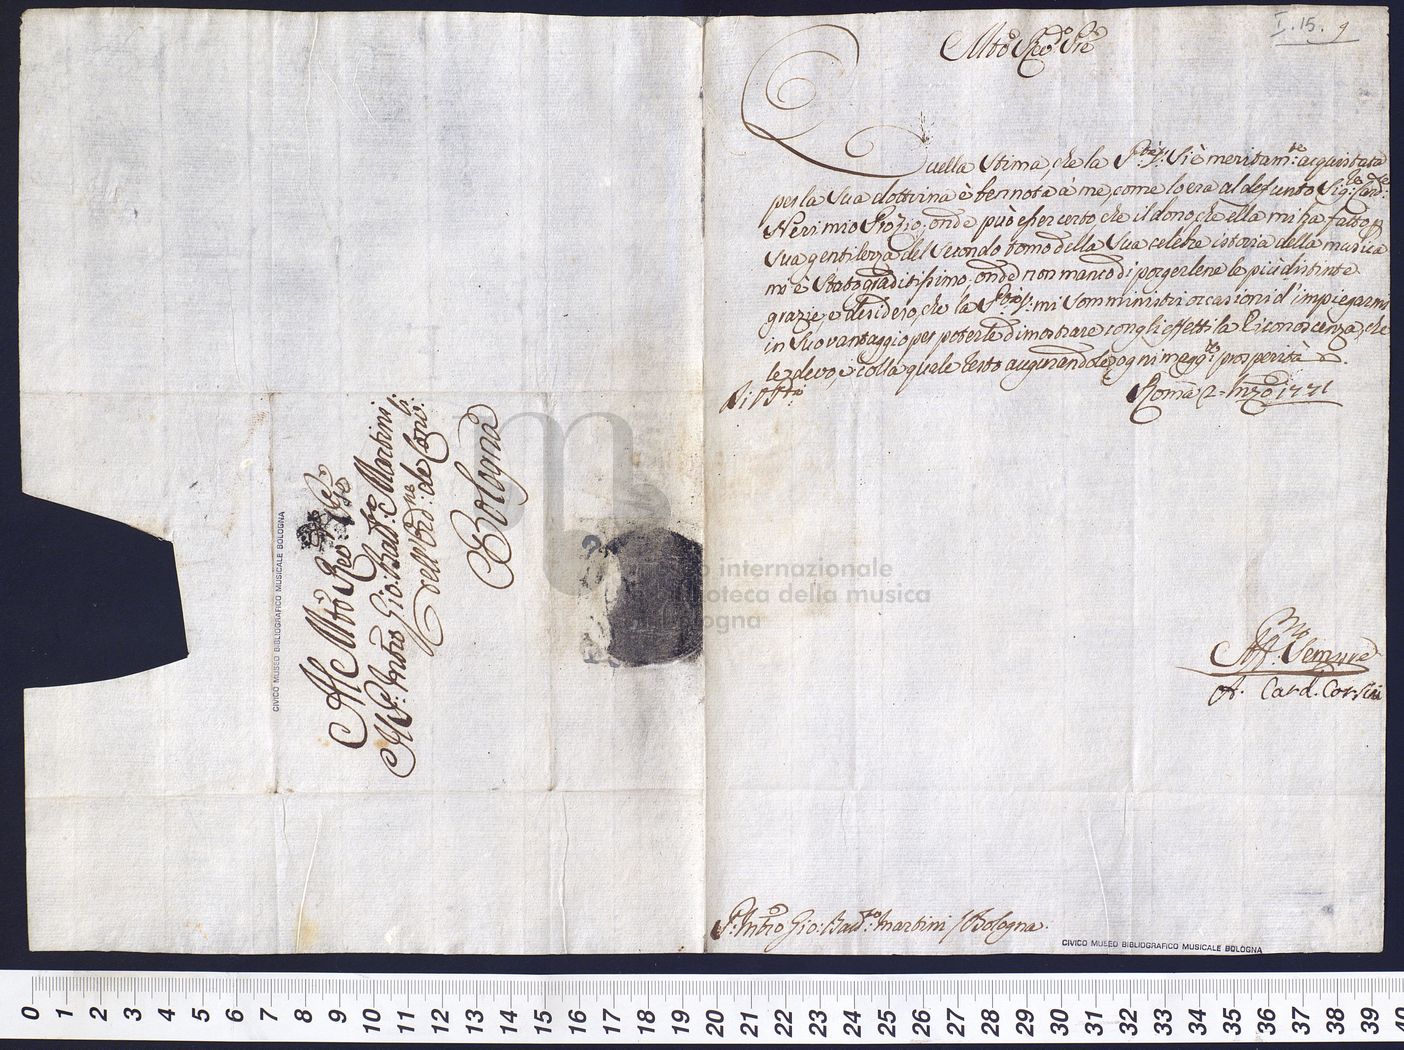 I. 15. 9
Mto Rdo Pre
Quella Stima, che la P.tà V. Si è meritam.te acquistata
per la Sua dottrina è ben nota à me, come lo era al defunto Sig.r Card.le
Neri mio Prozio; onde può esser certo che il dono, che ella mi ha fatto p
Sua gentilezza del Secondo tomo della Sua celebre istoria della musica
mi è Stato graditissimo: onde non manco di porgerlene le più distinte
grazie, e desidero, che la P.tà V. mi Somministri occasioni d'impiegarmi
in Suo vantaggio per poterle dimostrare con gli effetti la Riconoscenza, che
le devo, e colla quale resto augurandole ogni magg.re prosperità
Di V. P.tà Roma 2 Mzo 1771
Aff.mo Sempre
A. Card. Corsini
P. Mro Gio: Batta Martini / Bologna
CIVICO MUSEO BIBLIOGRAFICO MUSICALE BOLOGNA
Al Mto Rdo Pre
Il P. Mro Gio: Batta Martini
dell'Ord.ne de Con.li
Bologna
CIVICO MUSEO BIBLIOGRAFICO MUSICALE BOLOGNA
internazionale
biblioteca della musica
bologna
0 1 2 3 4 5 6 7 8 9 10 11 12 13 14 15 16 17 18 19 20 21 22 23 24 25 26 27 28 29 30 31 32 33 34 35 36 37 38 39 40